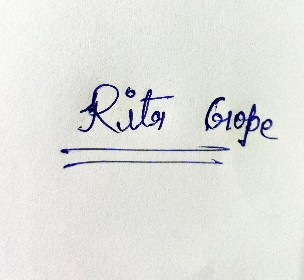 Rita Gope